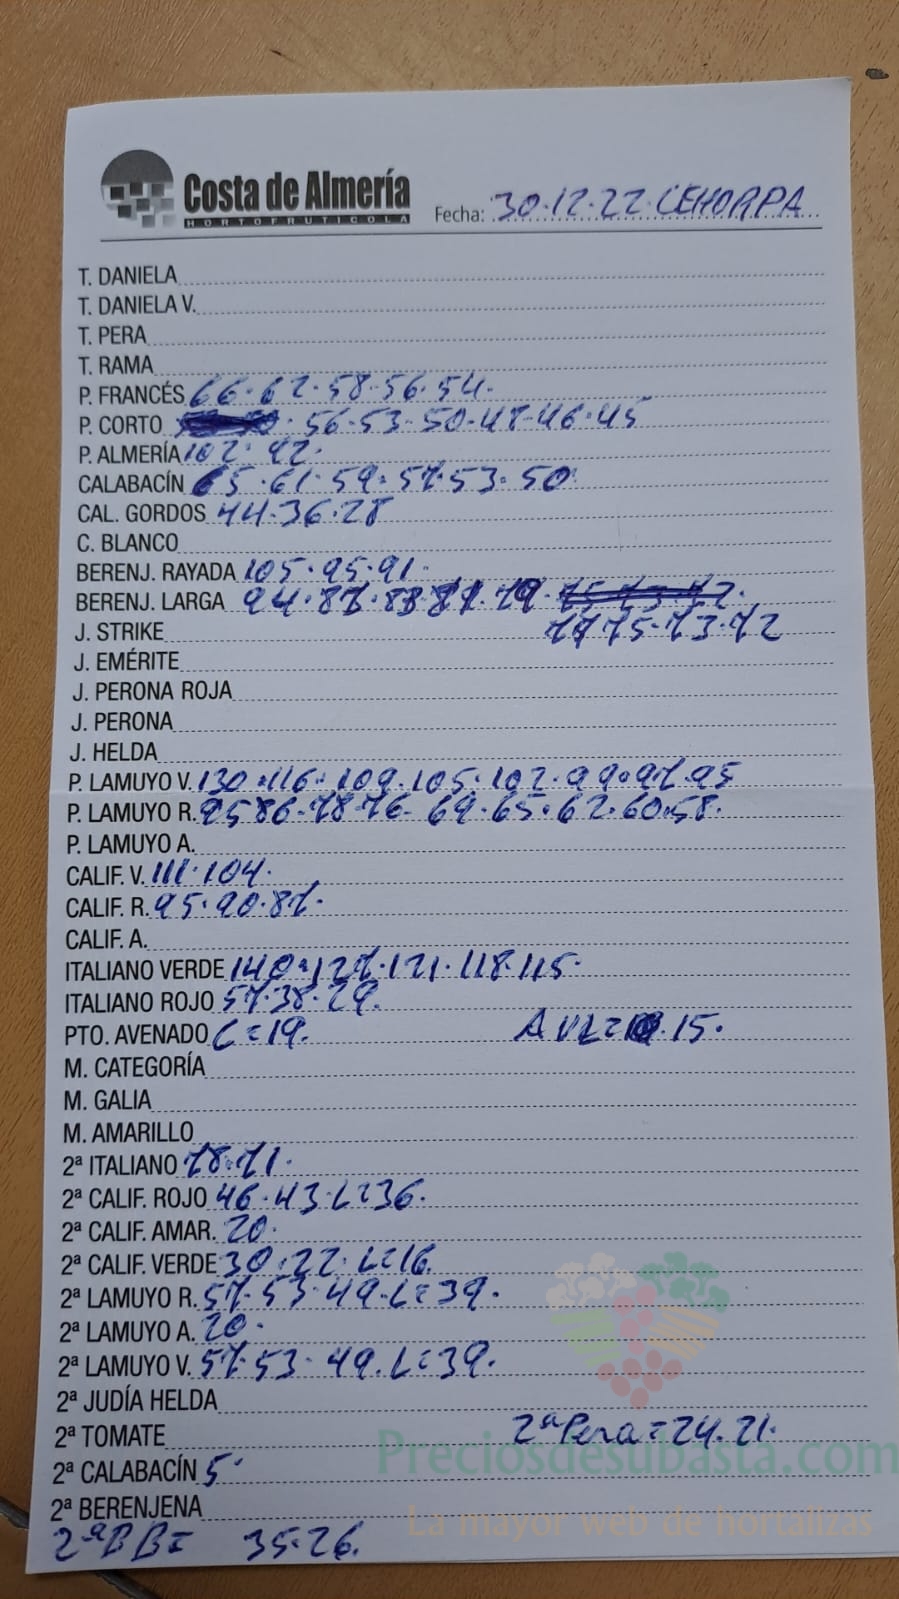 Costa de Almería
HORTOFRUTICOLA
Fecha: 30.12.22 CEHORPA
T. DANIELA
T. DANIELA V.
T. PERA
T. RAMA
P. FRANCÉS 66.62.58.56.54.
P. CORTO 56-53-50-47-46-45
P. ALMERÍA 102.92.
CALABACÍN 65.61.59.57.53.50
CAL. GORDOS 44.36.28
C. BLANCO
BERENJ. RAYADA 105.95.91.
BERENJ. LARGA 94.87.83 81.79. 75 73 72.
J. STRIKE 77 75.73.72
J. EMÉRITE
J. PERONA ROJA
J. PERONA
J. HELDA
P. LAMUYO V. 130.116.109.105.102.99.97.95
P. LAMUYO R. 95 86.78.76-69.65.62.60.58.
P. LAMUYO A.
CALIF. V. 111.104.
CALIF. R. 95.90.87.
CALIF. A.
ITALIANO VERDE 140.127.121.118.115.
ITALIANO ROJO 57.38.29.
PTO. AVENADO C=19. AVL= 15.
M. CATEGORÍA
M. GALIA
M. AMARILLO
2ª ITALIANO 78.71.
2ª CALIF. ROJO 46.43.L=36.
2ª CALIF. AMAR. 20.
2ª CALIF. VERDE 30.22.L=16.
2ª LAMUYO R. 57.53.49.L=39.
2ª LAMUYO A. 20.
2ª LAMUYO V. 57.53.49.L=39.
2ª JUDÍA HELDA
2ª TOMATE 2ª Pera=24.21.
2ª CALABACÍN 5.
2ª BERENJENA
2ª BB= 35.26.
Preciosdesubasta.com
La mayor web de hortalizas